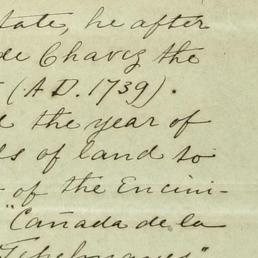 state, he after
de Chavez the
(A.D. 1739).
the year of
of land to
of the Encini-
"Cañada de la